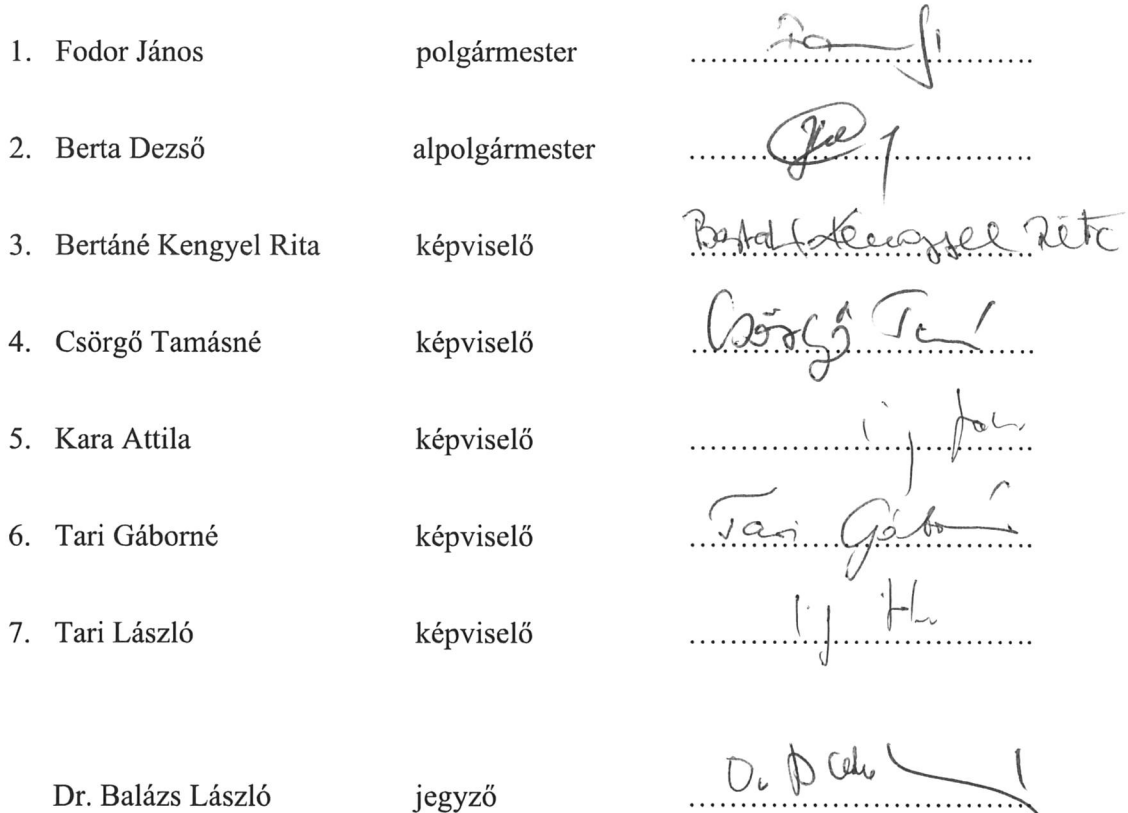 1. Fodor János polgármester
2. Berta Dezső alpolgármester
3. Bertáné Kengyel Rita képviselő Kengyel Rita
4. Csörgő Tamásné képviselő Csörgő
5. Kara Attila képviselő
6. Tari Gáborné képviselő Tari Gáborné
7. Tari László képviselő
Dr. Balázs László jegyző